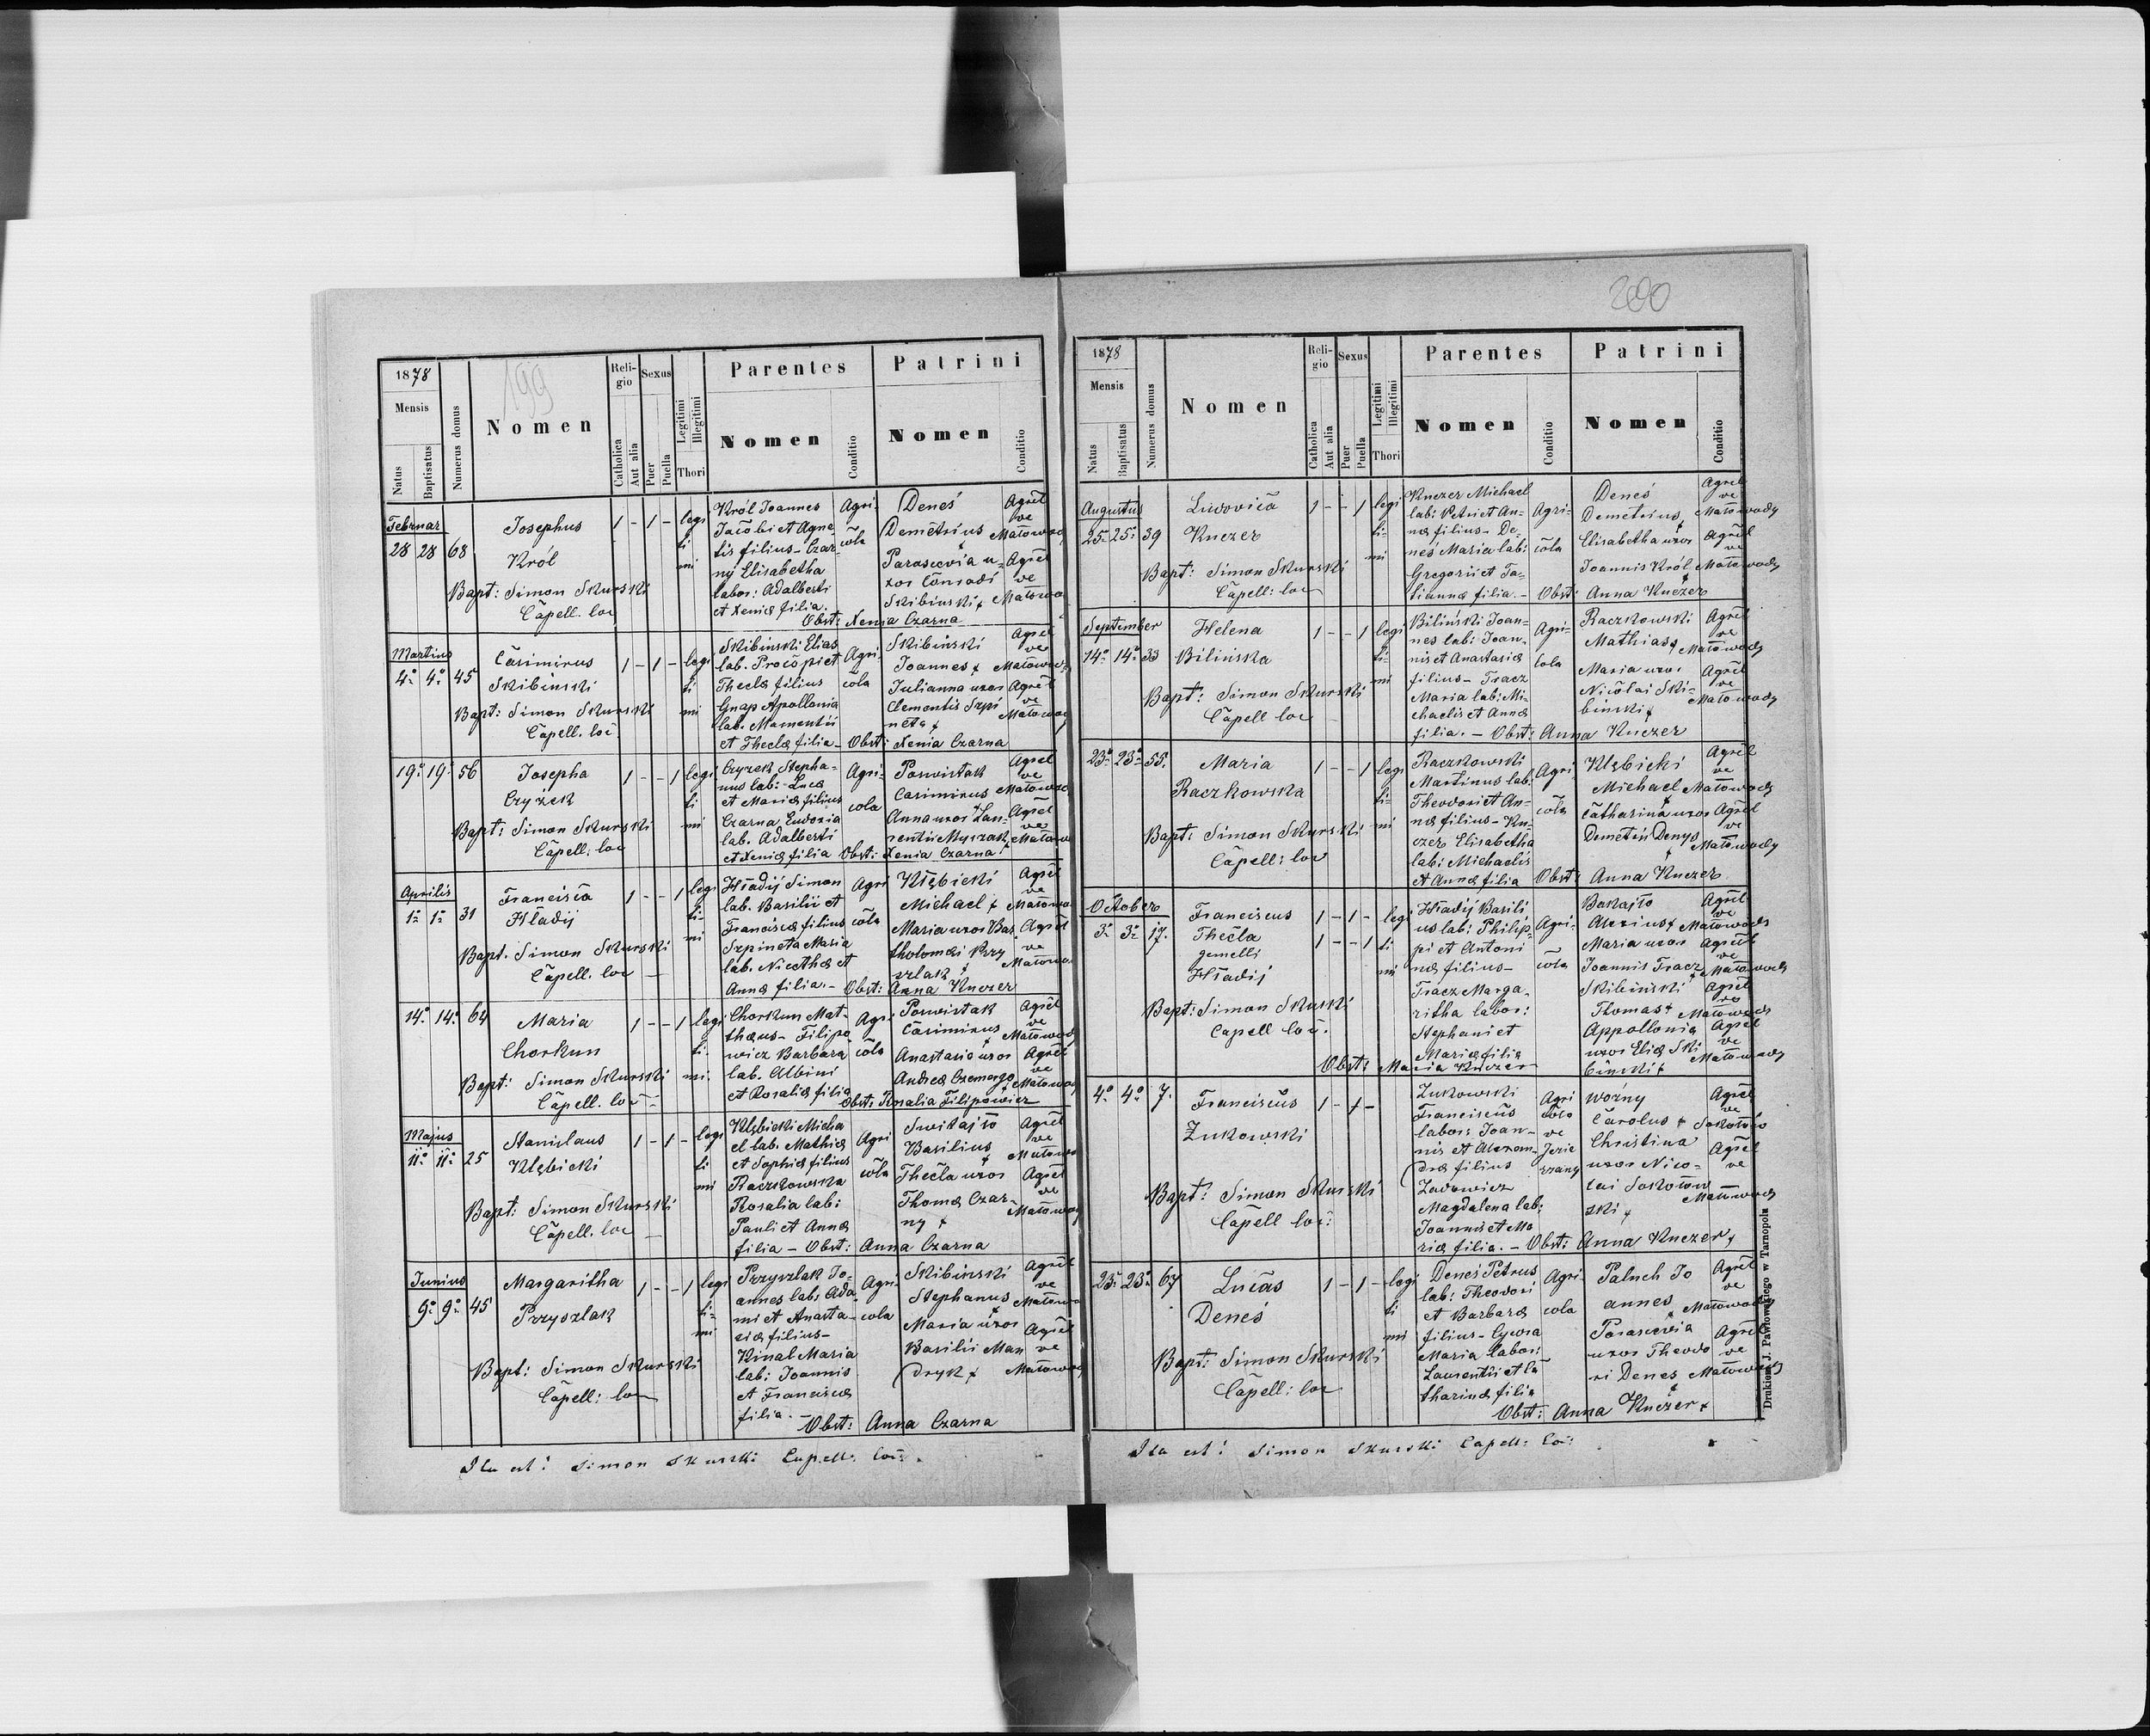 199
1878
Mensis
Natus
Baptisatus
Numerus domus
Nomen
Religio
Catholica
Aut alia
Sexus
Puer
Puella
Legitimi
Illegitimi
Thori
Parentes
Nomen
Conditio
Patrini
Nomen
Conditio
Februar
28 28 68
Josephus
Król
Bapt: Simon Skurski
Capell. loc
1 - 1 -
legi
ti
mi
Król Joannes
Jacobi et Agne
tis filius - Czar
ny Elisabetha
labor: Adalberti
et Xeniæ filia.
Agri-
cola
Deneś
Demetrius
Parascevia u-
xor Conradi
Skibinski +
Agrel
ve
Małowod
Agrel
ve
Małowo
Obst: Xenia Czarna
Martius
4° 4° 45
Casimirus
Skibinski
Bapt: Simon Skurski
Capell. loc.
1 - 1 -
legi
ti
mi
Skibinski Elias
lab. Procopi et
Theclæ filius
Gnap Apollonia
lab. Mamentii
et Theclæ filia -
Agri
cola
Skibinski
Joannes +
Julianna uxor
Clementis Szpi
neta +
Agrel
ve
Małowod
Agrel
ve
Małowod
Obst: Xenia Czarna
19° 19° 56
Josepha
Czyżek
Bapt: Simon Skurski
Capell: loc
1 - - 1
legi
ti
mi
Czyzek Stepha-
nus lab: Lucæ
et Mariæ filius
Czarna Eudoxia
lab. Adalberti
et Xeniæ filia
Agri-
cola
Poswistak
Casimirus
Anna uxor Lau-
rentii Myszak
Agrel
ve
Małowod
Agrel
ve
Małowo
Obst: Xenia Czarna
Aprilis
1° 1° 31
Francisca
Hładij
Bapt. Simon Skurski
Capell. loc -
1 - - 1
legi
ti-
mi
Hładij Simon
lab. Basilii et
Franciscæ filius
Szpineta Maria
lab. Nicethæ et
Annæ filia. -
Agri
cola
Kłębicki
Michael +
Maria uxor Bar
tholomæi Przy
szlak +
Agrel
ve
Małowo
Agrel
ve
Małowo
Obst: Anna Knezer
14° 14° 64
Maria
Chorkun
Bapt: Simon Skurski
Capell. loc -
1 - - 1
legi
ti.
mi.
Chorkun Mat-
thæus - Filipo
wicz Barbara
lab. Albini
et Rosaliæ filia
Agri
cola
Poswistak
Casimirus
Anastasia uxor
Agrel
ve
Małowod
Agrel
ve
Małowod
Obst: Rosalia Filipowicz
Majus
11° 11° 25
Stanislaus
Kłębicki
Bapt: Simon Skurski
Capell. loc -
1 - 1 -
legi
ti
mi
Kłębicki Micha
el lab. Mathiæ
et Sophiæ filius
Raczkowska
Rosalia lab:
Pauli et Annæ
filia -
Agri
cola
Switajło
Basilius +
Thecla uxor
Thomæ Czar-
ny +
Agrel
ve
Małowo
Agrel
ve
Małowod
Obst: Anna Czarna
Junius
9° 9° 45
Margaritha
Przyszlak
Bapt: Simon Skurski
Capell: loc
1 - - 1
legi
ti-
mi
Przyszlak Jo-
annes lab: Ada
mi et Anasta-
siæ filius -
Kinal Maria
lab: Joannis
et Franciscæ
filia. -
Agri-
cola
Skibinski
Stephanus
Maria uxor
Basilii Man
dryk +
Agrel
ve
Małowo
Agrel
ve
Małowod
Obst: Anna Czarna
Ita est: Simon Skurski Capell: loc:
200
1878
Mensis
Natus
Baptisatus
Numerus domus
Nomen
Religio
Catholica
Aut alia
Sexus
Puer
Puella
Legitimi
Illegitimi
Thori
Parentes
Nomen
Conditio
Patrini
Nomen
Conditio
Augustus
25° 25° 39
Ludovica
Knezer
Bapt: Simon Skurski
Capell: loc
1 - - 1
legi
ti-
mi
Knezer Michael
lab: Petri et An-
næ filius - De-
neś Maria lab:
Gregorii et Ta-
tiannæ filia. -
Agri-
cola
Deneś
Demetrius +
Elisabetha uxor
Joannis Król +
Agrel
ve
Małowody
Agrel
ve
Małowody
Obst: Anna Knezer
September
14° 14° 33
Helena
Bilińska
Bapt: Simon Skurski
Capell loc
1 - - 1
legi
ti-
mi
Biliński Joan-
nes lab: Joan-
nis et Anastasiæ
filius - Tracz
Maria lab: Mi-
chaelis et Annæ
filia. -
Agri-
cola
Raczkowski
Mathias +
Maria uxor
Nicolai Ski-
binski +
Agrel
ve
Małowody
Agrel
ve
Małowody
Obst: Anna Knezer
23° 23° 55.
Maria
Raczkowska
Bapt: Simon Skurski
Capell: loc
1 - - 1
legi
ti-
mi
Raczkowski
Martinus lab:
Theodori et An-
næ filius - Kne-
zer Elisabetha
lab: Michaelis
et Annæ filia
Agri
cola
Kłębicki
Michael
Catharina uxor
Demetrii Denys
Agrel
ve
Małowody
Agrel
ve
Małowody
Obst: Anna Knezer
October
3° 3° 17.
Franciscus
Thecla
gemelli
Hładij
Bapt: Simon Skurski
Capell loc.
1 - 1 -
1 - - 1
legi
ti
mi
Hładij Basili
us lab: Philip-
pi et Antoni
næ filius -
Tracz Marga-
ritha labor:
Stephani et
Mariæ filia
Agri-
cola
Bakajło
Alexius +
Maria uxor
Joannis Tracz
Skibinski
Thomas +
Appollonia
uxor Eliæ Ski
binski +
Agrel
ve
Małowody
Agrel
ve
Małowody
Agrel
ve
Małowody
Agrel
ve
Małowody
Obst: Maria Knezer
4° 4° 7.
Franciscus
Żukowski
Bapt: Simon Skurski
Capell loc:
1 - 1 -
Zukowski
Franciscus
labor: Joan-
nis et Alexan-
dræ filius
Zadowicz
Magdalena lab:
Joannis et Ma
riæ filia. -
Agri
cola
ve
Jezie
rzany
Wozny
Carolus +
Christina
uxor Nico-
lai Sokołow
ski +
Agrel
ve
Agrel
ve
Małowody
Obst: Anna Knezer +
23° 23° 67
Lucas
Deneś
Bapt: Simon Skurski
Capell: loc
1 - 1 -
legi
ti
mi
Deneś Petrus
lab: Theodori
et Barbaræ
filius -
Maria labor:
Laurentii et Ca
tharinæ filia
Agri-
cola
Paluch Jo
annes
Parascevia
uxor Theodo
ri Denes
Agrel
ve
Małowody
Agrel
ve
Małowody
Obst: Anna Knezer +
Ita est: Simon Skurski Capell: loc:
Drukiem J. Pawłowskiego w Tarnopolu